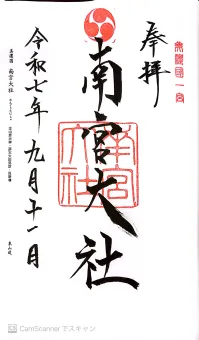 奉拝
美濃國一宮
南宮大社
南宮大社
令和七年九月十一月
美濃国 南宮大社
CamScanner でスキャン